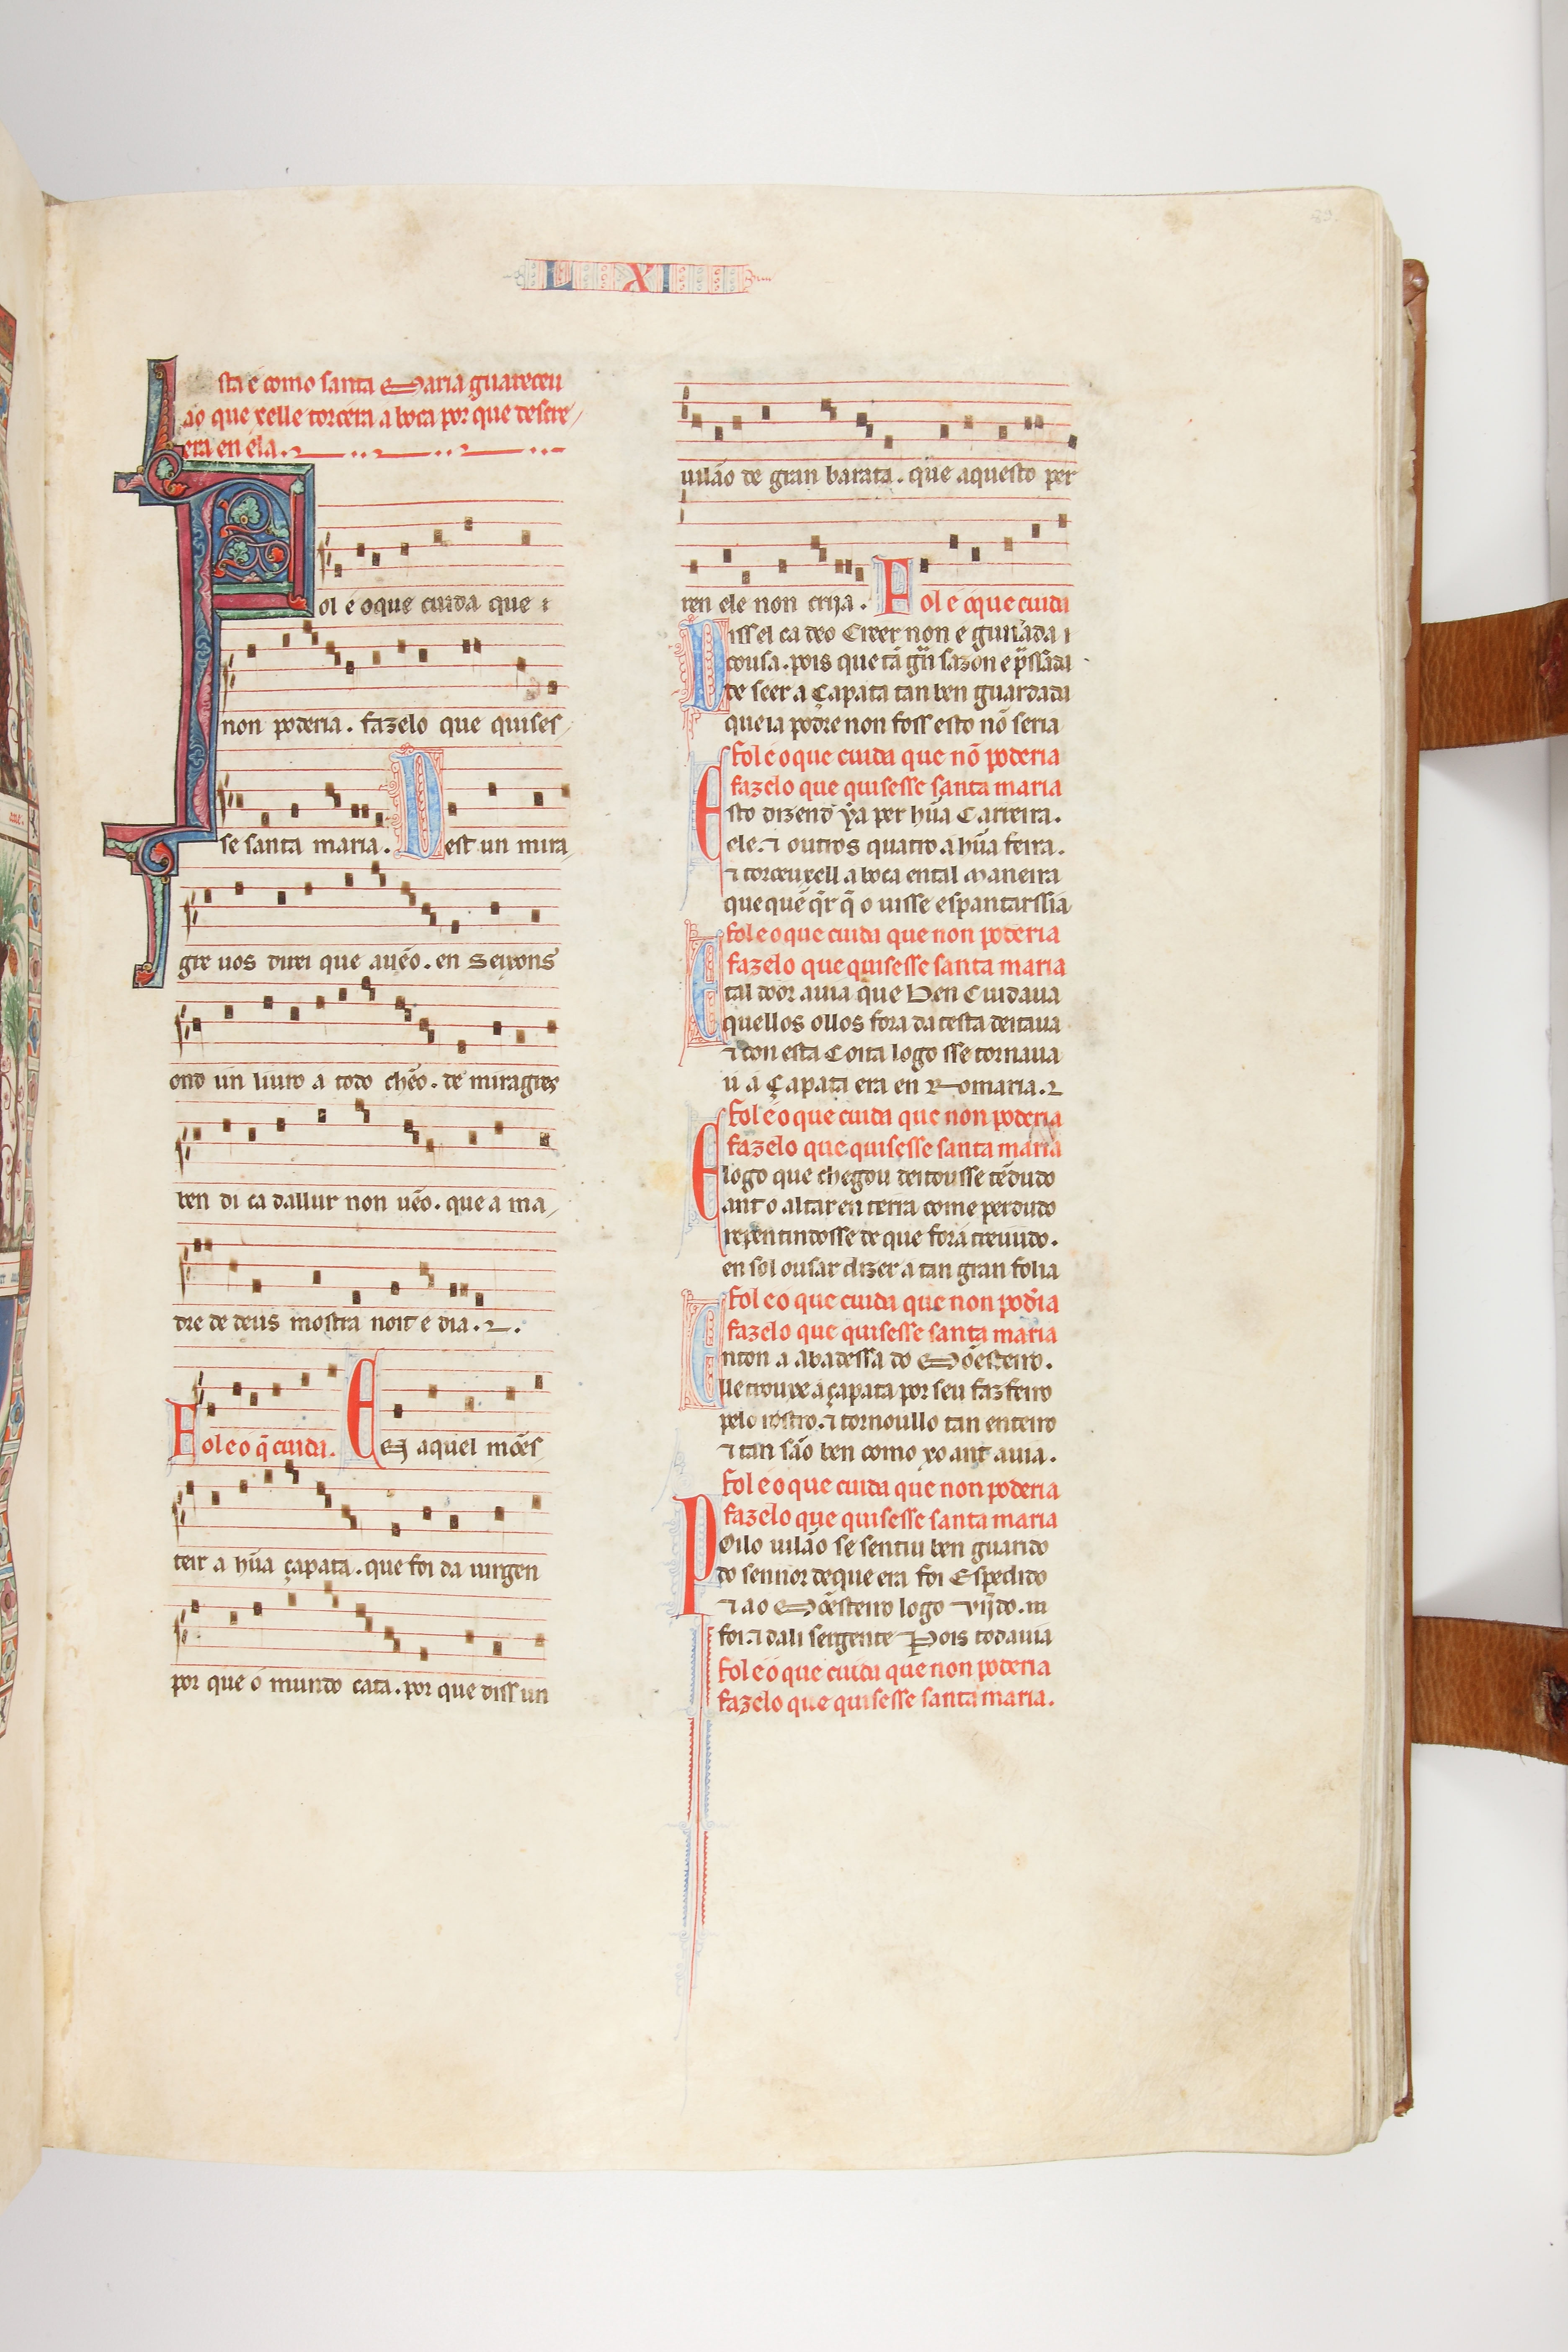 LXI
sta é como santa Maria guareceu
ao que xelle torcera a boca por que descre
era en ela.
Fol é o que cuida que
non poderia. fazelo que quises
se santa maria. Dest un mira
gre uos direi que auẽo. en Seixons
ond un liuro a todo chẽo. de miragres
ben di ca dallur non uẽo. que a ma
dre de deus mostra noit e dia.
Fol é o q̃ cuida. En aquel mões
teir a hũa çapata. que foi da uirgen
por que o mundo cata. por que diss un
uilão de gran barata. que aquesto per
ren ele non crija. Fol é o que cuida
Diss el ca deo Creer non e guisada
cousa. pois que tã grã sazon e passada
de seer a Çapata tan ben guardada
que ia podre non foss esto nõ seria
fol é o que cuida que nõ poderia
fazelo que quisesse santa maria
Esto dizend ya per hũa Carreira.
ele. ⁊ outros quatro. a hũa feira.
⁊ torceuxell a boca en tal Maneira
que quẽ q̃r q̃ o uisse espantarssia
fol é o que cuida que non poderia
fazelo que quisesse santa maria
E tal door auia que ben Cuidaua
quellos ollos fora da testa deitaua
⁊ con esta Coita logo sse tornaua
u a Çapata era en Romaria.
fol é o que cuida que non poderia
fazelo que quisesse santa maria
E logo que chegou deitousse tẽdudo
ant o altar en terra come perdudo
repentindosse de que fora creuudo.
en sol ousar dizer a tan gran folia
fol é o que cuida que non podia
fazelo que quisesse santa maria
Enton a abadessa do Mõesteiro.
lle trouxe a çapata por seu fazfeiro
pelo rostro. ⁊ tornoullo tan enteiro
⁊ tan são ben como xo ant auia.
fol é o que cuida que non poderia
fazelo que quisesse santa maria
Poilo uilão se sentiu ben guarido
do sennor de que era foi Espedido
⁊ ao Mõesteiro logo vĩjdo. m
foi. ⁊ dali sergente Pois todauia
fol é o que cuida que non poderia
fazelo que quisesse santa maria.